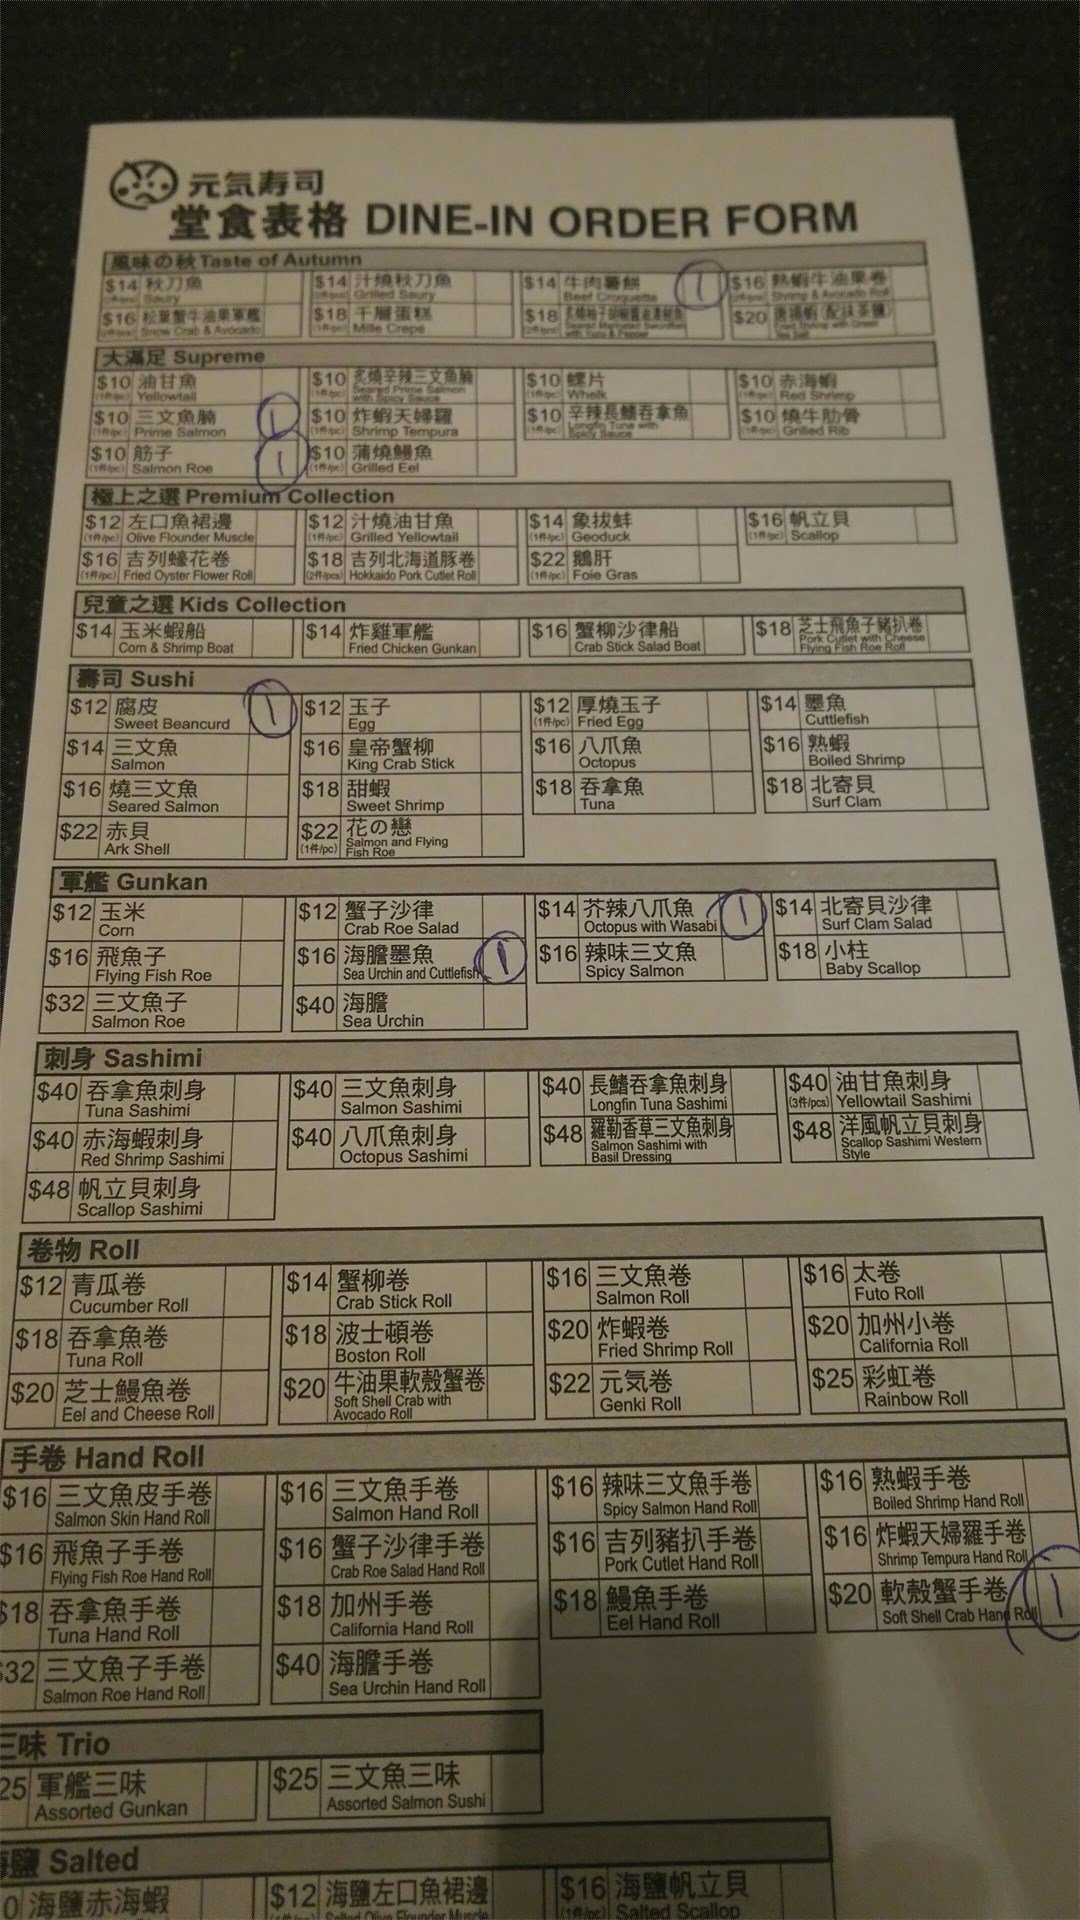 元気寿司
堂食表格 DINE-IN ORDER FORM
風味の秋 Taste of Autumn
$14 秋刀魚 $14 汁燒秋刀魚 $14 牛肉薯餅 1 $16 熟蝦牛油果卷
Saury Grilled Saury Beef Croquette Shrimp & Avocado Roll
$16 松葉蟹牛油果軍艦 $18 千層蛋糕 $18 $20
Snow Crab & Avocado Mille Crepe
大滿足 Supreme
$10 油甘魚 $10 炙燒辛辣三文魚腩 $10 螺片 $10 赤海蝦
(1件/pc) Yellowtail (1件/pc) Seared Prime Salmon with Spicy Sauce (1件/pc) Whelk (1件/pc) Red Shrimp
$10 三文魚腩 1 $10 炸蝦天婦羅 $10 辛辣長鰭吞拿魚 $10 燒牛肋骨
(1件/pc) Prime Salmon (1件/pc) Shrimp Tempura (1件/pc) Longfin Tuna with Spicy Sauce (1件/pc) Grilled Rib
$10 筋子 1 $10 蒲燒鰻魚
(1件/pc) Salmon Roe (1件/pc) Grilled Eel
極上之選 Premium Collection
$12 左口魚裙邊 $12 汁燒油甘魚 $14 象拔蚌 $16 帆立貝
(1件/pc) Olive Flounder Muscle (1件/pc) Grilled Yellowtail (1件/pc) Geoduck (1件/pc) Scallop
$16 吉列蠔花卷 $18 吉列北海道豚卷 $22 鵝肝
(1件/pc) Fried Oyster Flower Roll (2件/pcs) Hokkaido Pork Cutlet Roll (1件/pc) Foie Gras
兒童之選 Kids Collection
$14 玉米蝦船 $14 炸雞軍艦 $16 蟹柳沙律船 $18 芝士飛魚子豬扒卷
Corn & Shrimp Boat Fried Chicken Gunkan Crab Stick Salad Boat Pork Cutlet with Cheese Flying Fish Roe Roll
壽司 Sushi
$12 腐皮 1 $12 玉子 $12 厚燒玉子 $14 墨魚
Sweet Beancurd Egg (1件/pc) Fried Egg Cuttlefish
$14 三文魚 $16 皇帝蟹柳 $16 八爪魚 $16 熟蝦
Salmon King Crab Stick Octopus Boiled Shrimp
$16 燒三文魚 $18 甜蝦 $18 吞拿魚 $18 北寄貝
Seared Salmon Sweet Shrimp Tuna Surf Clam
$22 赤貝 $22 花の戀
Ark Shell (1件/pc) Salmon and Flying Fish Roe
軍艦 Gunkan
$12 玉米 $12 蟹子沙律 $14 芥辣八爪魚 1 $14 北寄貝沙律
Corn Crab Roe Salad Octopus with Wasabi Surf Clam Salad
$16 飛魚子 $16 海膽墨魚 1 $16 辣味三文魚 $18 小柱
Flying Fish Roe Sea Urchin and Cuttlefish Spicy Salmon Baby Scallop
$32 三文魚子 $40 海膽
Salmon Roe Sea Urchin
刺身 Sashimi
$40 吞拿魚刺身 $40 三文魚刺身 $40 長鰭吞拿魚刺身 $40 油甘魚刺身
Tuna Sashimi Salmon Sashimi Longfin Tuna Sashimi (3件/pcs) Yellowtail Sashimi
$40 赤海蝦刺身 $40 八爪魚刺身 $48 羅勒香草三文魚刺身 $48 洋風帆立貝刺身
Red Shrimp Sashimi Octopus Sashimi Salmon Sashimi with Basil Dressing Scallop Sashimi Western Style
$48 帆立貝刺身
Scallop Sashimi
卷物 Roll
$12 青瓜卷 $14 蟹柳卷 $16 三文魚卷 $16 太卷
Cucumber Roll Crab Stick Roll Salmon Roll Futo Roll
$18 吞拿魚卷 $18 波士頓卷 $20 炸蝦卷 $20 加州小卷
Tuna Roll Boston Roll Fried Shrimp Roll California Roll
$20 芝士鰻魚卷 $20 牛油果軟殼蟹卷 $22 元気卷 $25 彩虹卷
Eel and Cheese Roll Soft Shell Crab with Avocado Roll Genki Roll Rainbow Roll
手卷 Hand Roll
$16 三文魚皮手卷 $16 三文魚手卷 $16 辣味三文魚手卷 $16 熟蝦手卷
Salmon Skin Hand Roll Salmon Hand Roll Spicy Salmon Hand Roll Boiled Shrimp Hand Roll
$16 飛魚子手卷 $16 蟹子沙律手卷 $16 吉列豬扒手卷 $16 炸蝦天婦羅手卷
Flying Fish Roe Hand Roll Crab Roe Salad Hand Roll Pork Cutlet Hand Roll Shrimp Tempura Hand Roll
$18 吞拿魚手卷 $18 加州手卷 $18 鰻魚手卷 $20 軟殼蟹手卷 1
Tuna Hand Roll California Hand Roll Eel Hand Roll Soft Shell Crab Hand Roll
$32 三文魚子手卷 $40 海膽手卷
Salmon Roe Hand Roll Sea Urchin Hand Roll
三味 Trio
25 軍艦三味 $25 三文魚三味
Assorted Gunkan Assorted Salmon Sushi
海鹽 Salted
0 海鹽赤海蝦 $12 海鹽左口魚裙邊 $16 海鹽帆立貝
(1件/pc) Salted Olive Flounder Muscle (1件/pc) Salted Scallop